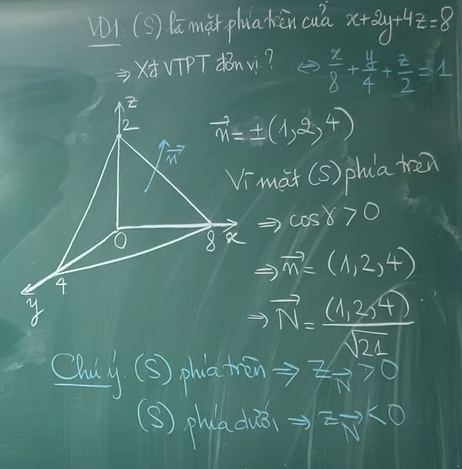 VD1. (S) là mặt phía trên của x+2y+4z=8
⇒ Xđ VTPT đơn vị? ⇔ x/8 + y/4 + z/2 = 1
z
2
n⃗
O
8
x
4
y
n⃗ = ±(1,2,4)
Vì mặt (S) phía trên
⇒ cosγ > 0
⇒ n⃗ = (1,2,4)
⇒ N⃗ = (1,2,4)/√21
Chú ý. (S) phía trên ⇒ z_N⃗ > 0
(S) phía dưới ⇒ z_N⃗ < 0